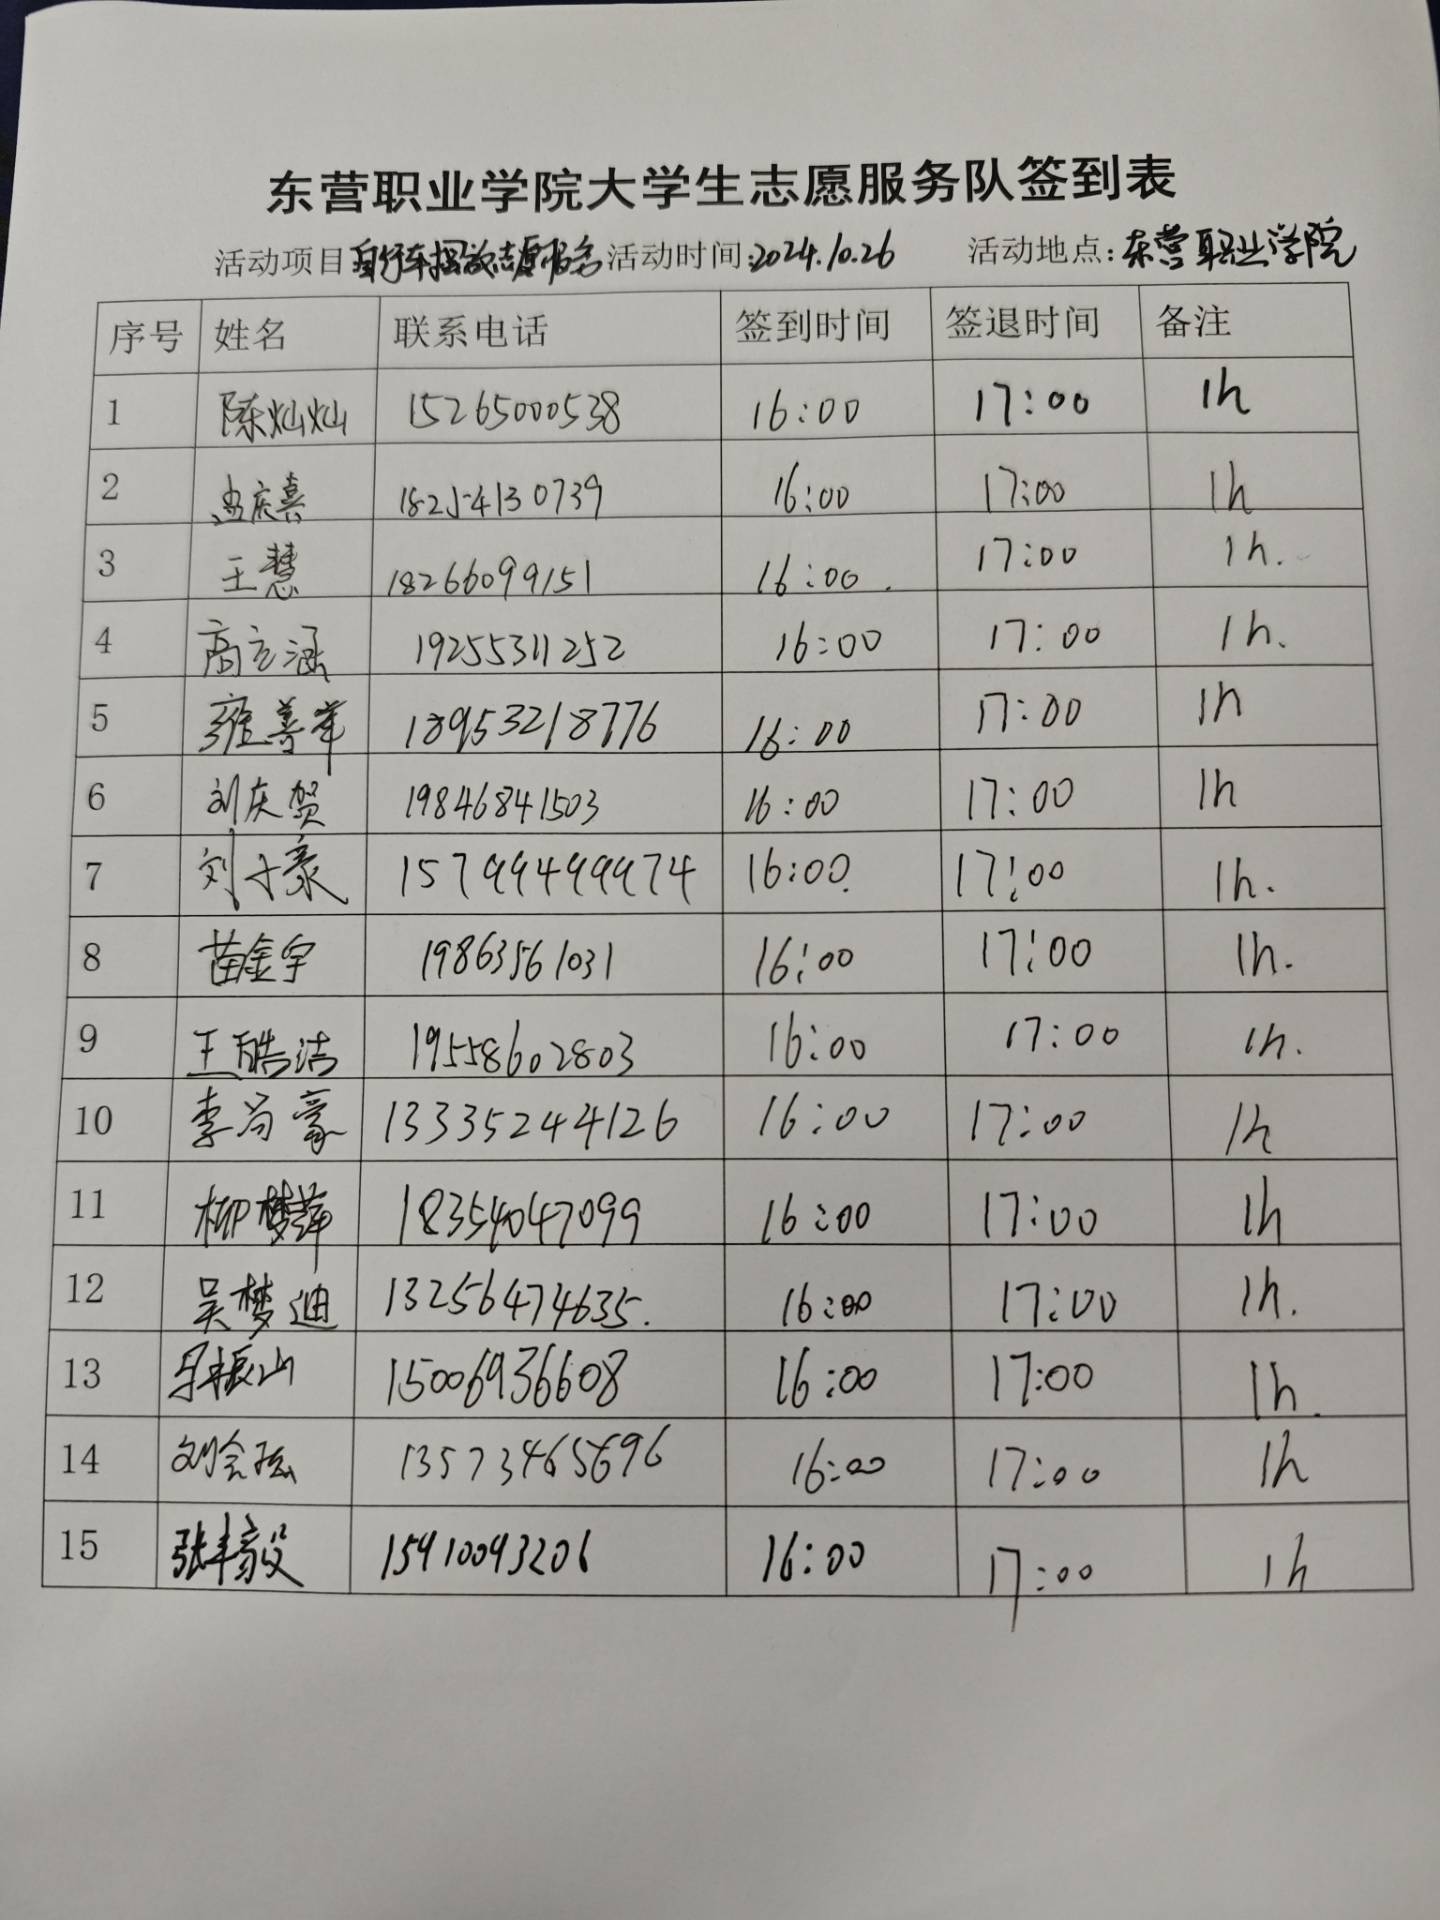 东营职业学院大学生志愿服务队签到表
活动项目自行车摆放志愿服务 活动时间:2024.10.26 活动地点:东营职业学院
序号 姓名 联系电话 签到时间 签退时间 备注
1 陈灿灿 15265000538 16:00 17:00 1h
2 孟庆喜 18254130739 16:00 17:00 1h
3 王慧 18266099151 16:00. 17:00 1h.
4 高立涵 19255311252 16:00 17:00 1h.
5 雍善举 18953218776 16:00 17:00 1h
6 刘庆贺 19846841503 16:00 17:00 1h
7 刘子豪 15799499974 16:00. 17:00 1h.
8 苗金宇 19863561031 16:00 17:00 1h.
9 王皓洁 19558602803 16:00 17:00 1h.
10 李尚豪 13335244126 16:00 17:00 1h
11 柳梦萍 18354047099 16:00 17:00 1h
12 吴梦迪 13256474635. 16:00 17:00 1h.
13 振山 15006936608 16:00 17:00 1h.
14 刘会 13573465696 16:00 17:00 1h
15 张丰毅 15910093206 16:00 17:00 1h